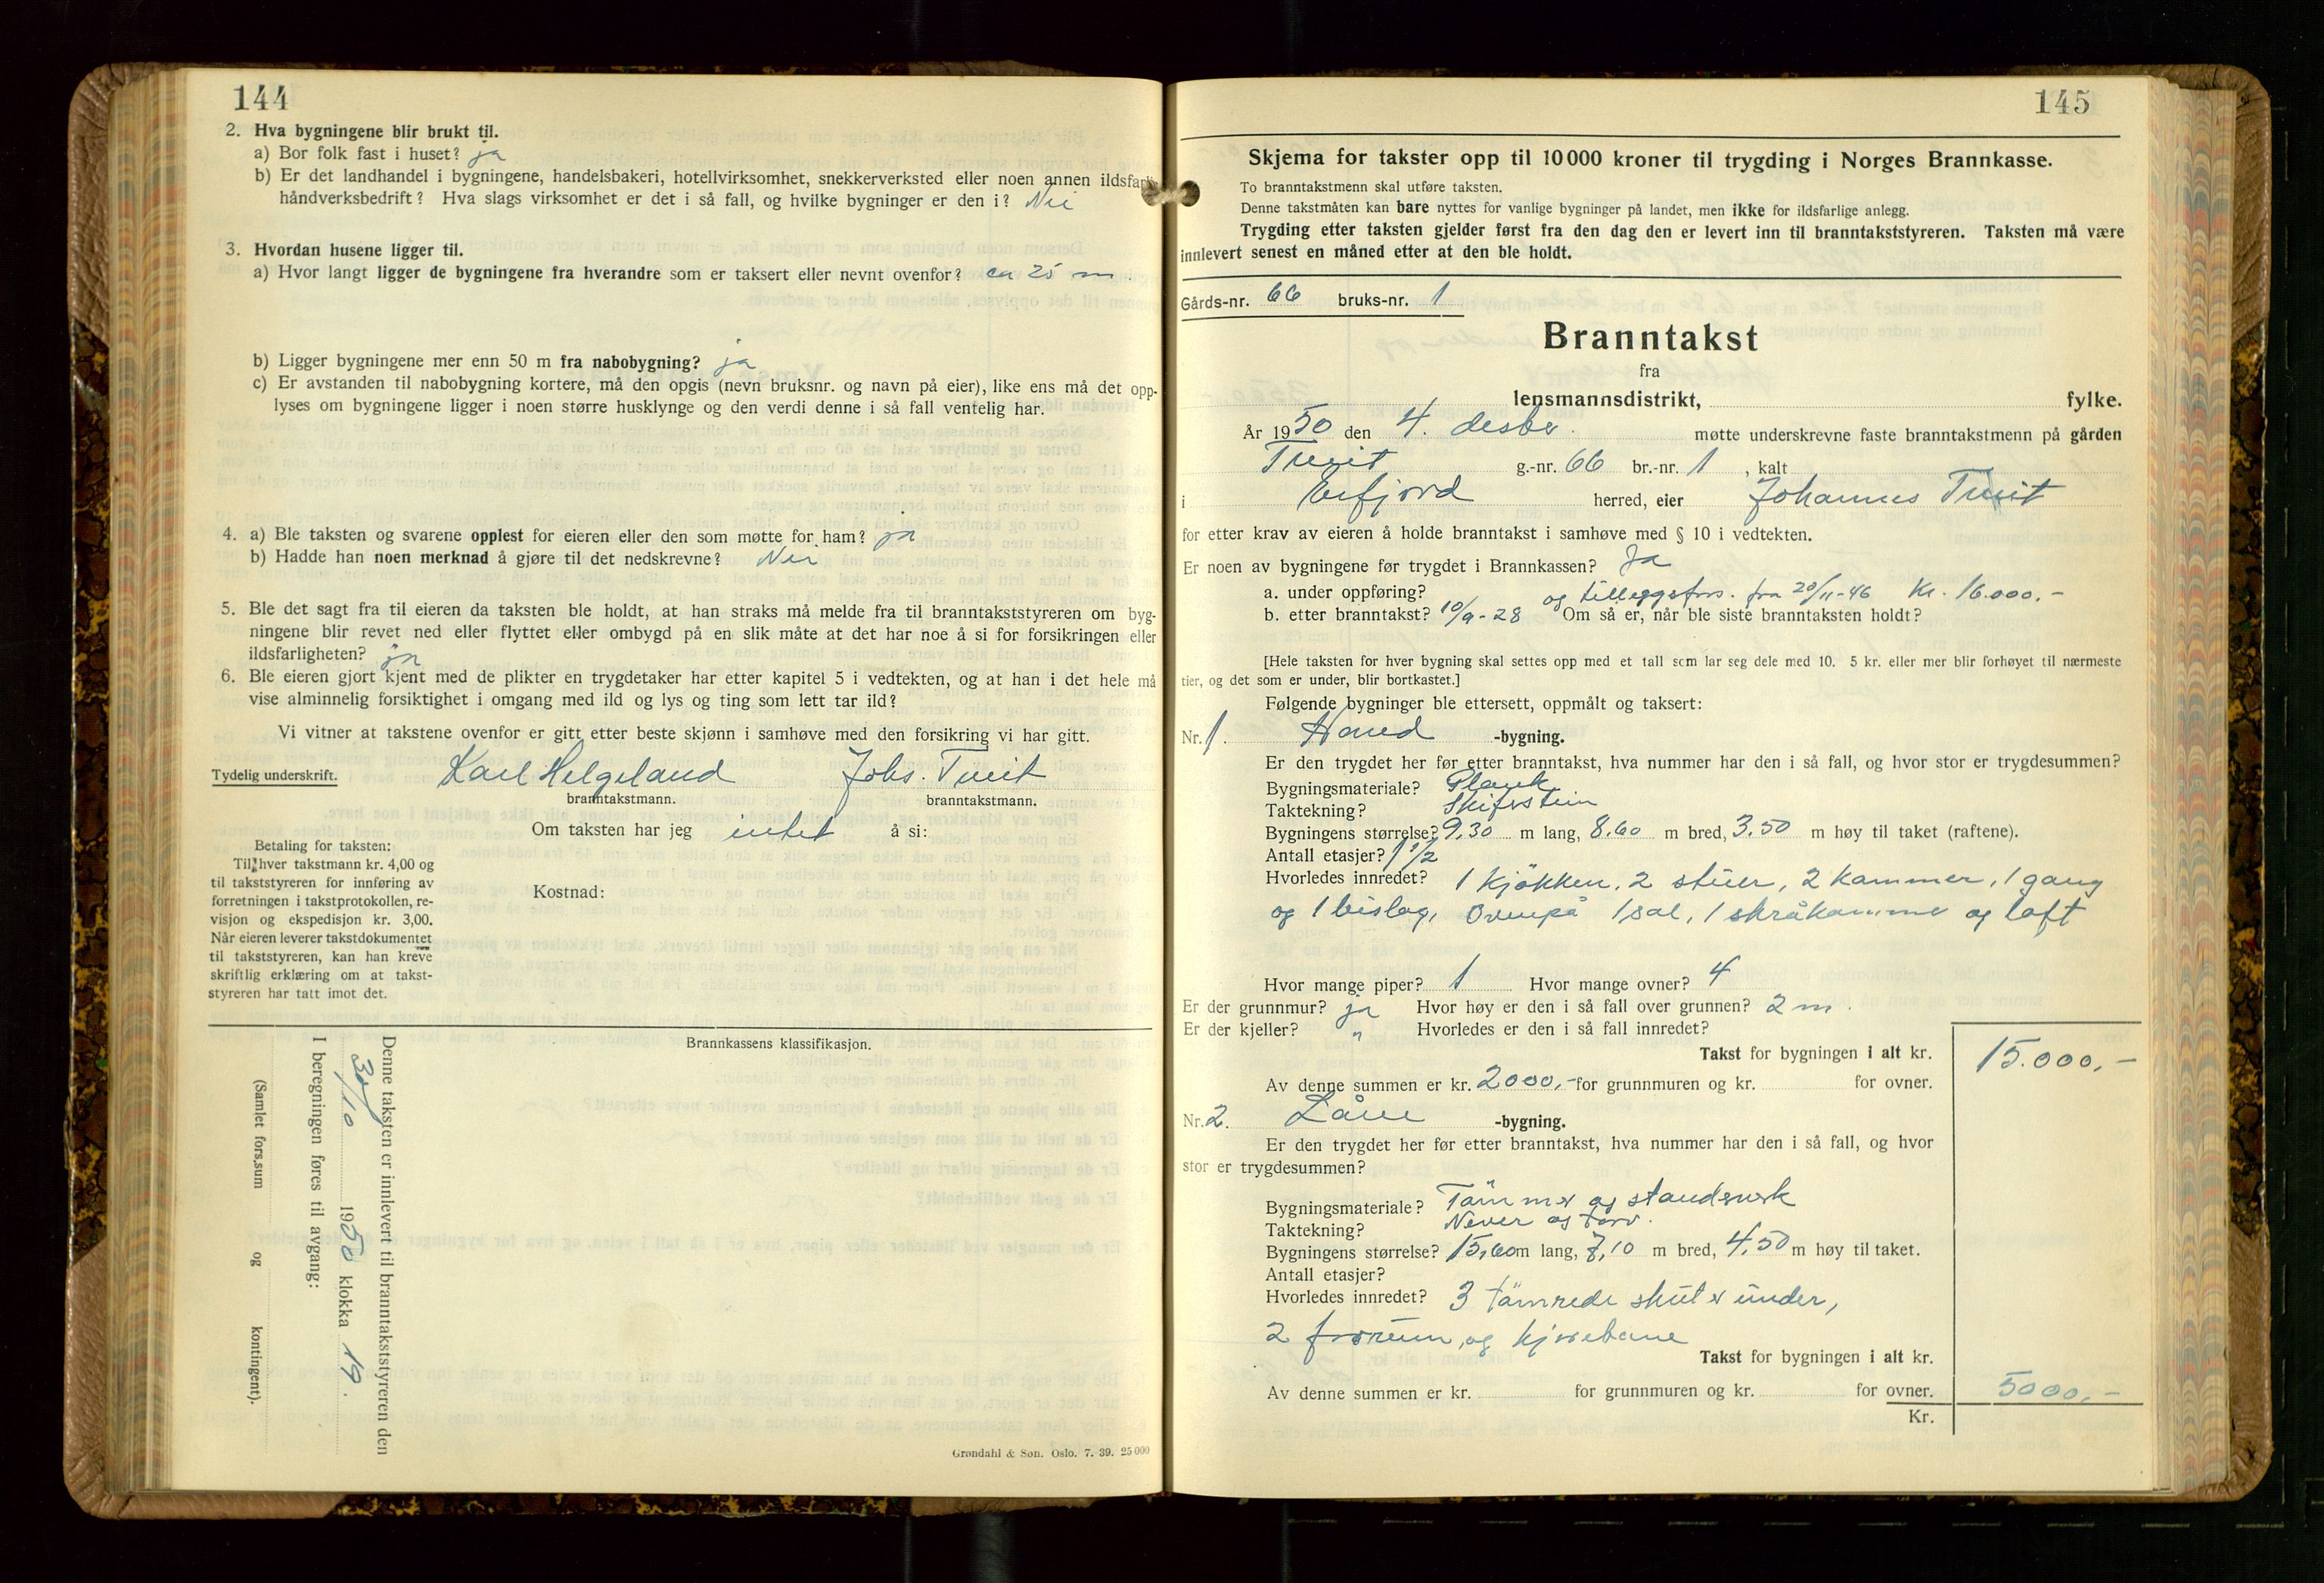 144
2. Hva bygningene blir brukt til.
a) Bor folk fast i huset? ja
b) Er det landhandel i bygningene, handelsbakeri, hotellvirksomhet, snekkerverksted eller noen annen ildsfarlig
håndverksbedrift? Hva slags virksomhet er det i så fall, og hvilke bygninger er den i? Nei
3. Hvordan husene ligger til.
a) Hvor langt ligger de bygningene fra hverandre som er taksert eller nevnt ovenfor? ca 25 m
b) Ligger bygningene mer enn 50 m fra nabobygning? ja
c) Er avstanden til nabobygning kortere, må den opgis (nevn bruksnr. og navn på eier), like ens må det opp-
lyses om bygningene ligger i noen større husklynge og den verdi denne i så fall ventelig har.
4. a) Ble taksten og svarene opplest for eieren eller den som møtte for ham? ja
b) Hadde han noen merknad å gjøre til det nedskrevne? Nei
5. Ble det sagt fra til eieren da taksten ble holdt, at han straks må melde fra til branntakststyreren om byg-
ningene blir revet ned eller flyttet eller ombygd på en slik måte at det har noe å si for forsikringen eller
ildsfarligheten? ja
6. Ble eieren gjort kjent med de plikter en trygdetaker har etter kapitel 5 i vedtekten, og at han i det hele må
vise alminnelig forsiktighet i omgang med ild og lys og ting som lett tar ild?
Vi vitner at takstene ovenfor er gitt etter beste skjønn i samhøve med den forsikring vi har gitt.
Tydelig underskrift. Karl Helgeland Johs. Tveit
branntakstmann. branntakstmann.
Om taksten har jeg intet å si:
Betaling for taksten:
Til hver takstmann kr. 4,00 og
til takststyreren for innføring av
forretningen i takstprotokollen, re-
visjon og ekspedisjon kr. 3,00.
Når eieren leverer takstdokumentet
til takststyreren, kan han kreve
skriftlig erklæring om at takst-
styreren har tatt imot det.
Kostnad:
Brannkassens klassifikasjon.
Denne taksten er innlevert til branntakststyreren den
30/10 1950 klokka 19.
I beregningen føres til avgang:
(Samlet fors.sum og kontingent).
Grøndahl & Søn. Oslo. 7. 39. 25 000
145
Skjema for takster opp til 10 000 kroner til trygding i Norges Brannkasse.
To branntakstmenn skal utføre taksten.
Denne takstmåten kan bare nyttes for vanlige bygninger på landet, men ikke for ildsfarlige anlegg.
Trygding etter taksten gjelder først fra den dag den er levert inn til branntakststyreren. Taksten må være
innlevert senest en måned etter at den ble holdt.
Gårds-nr. 66 bruks-nr. 1
Branntakst
fra
lensmannsdistrikt, fylke.
År 1950 den 4. desbr. møtte underskrevne faste branntakstmenn på gården
Tveit g.-nr. 66 br.-nr. 1, kalt
i Erfjord herred, eier Johannes Tveit
for etter krav av eieren å holde branntakst i samhøve med § 10 i vedtekten.
Er noen av bygningene før trygdet i Brannkassen? Ja
a. under oppføring? og tilleggsfors. fra 20/11-46 Kr. 16.000.-
b. etter branntakst? 10/9-28 Om så er, når ble siste branntaksten holdt?
[Hele taksten for hver bygning skal settes opp med et tall som lar seg dele med 10. 5 kr. eller mer blir forhøyet til nærmeste
tier, og det som er under, blir bortkastet.]
Følgende bygninger ble ettersett, oppmålt og taksert:
Nr. 1. Hoved -bygning.
Er den trygdet her før etter branntakst, hva nummer har den i så fall, og hvor stor er trygdesummen?
Bygningsmateriale? Plank
Taktekning? Skifrstein
Bygningens størrelse? 9.30 m lang, 8.60 m bred, 3.50 m høy til taket (raftene).
Antall etasjer? 1 1/2
Hvorledes innredet? 1 kjökken, 2 stuer, 2 kammer, 1 gang
og 1 bislag, Ovenpå 1 sal, 1 skråkammer og loft
Hvor mange piper? 1 Hvor mange ovner? 4
Er der grunnmur? ja Hvor høy er den i så fall over grunnen? 2 m.
Er der kjeller? " Hvorledes er den i så fall innredet?
Takst for bygningen i alt kr. 15.000,-
Av denne summen er kr. 2000,- for grunnmuren og kr. for ovner.
Nr. 2. Låve -bygning.
Er den trygdet her før etter branntakst, hva nummer har den i så fall, og hvor
stor er trygdesummen?
Bygningsmateriale? Tömmer og standverk
Taktekning? Never og torv.
Bygningens størrelse? 15,60 m lang, 7,10 m bred, 4,50 m høy til taket.
Antall etasjer?
Hvorledes innredet? 3 tömrede skut er under,
2 forrum, og kjørebane
Takst for bygningen i alt kr.
Av denne summen er kr. for grunnmuren og kr. for ovner. 5000,-
Kr.